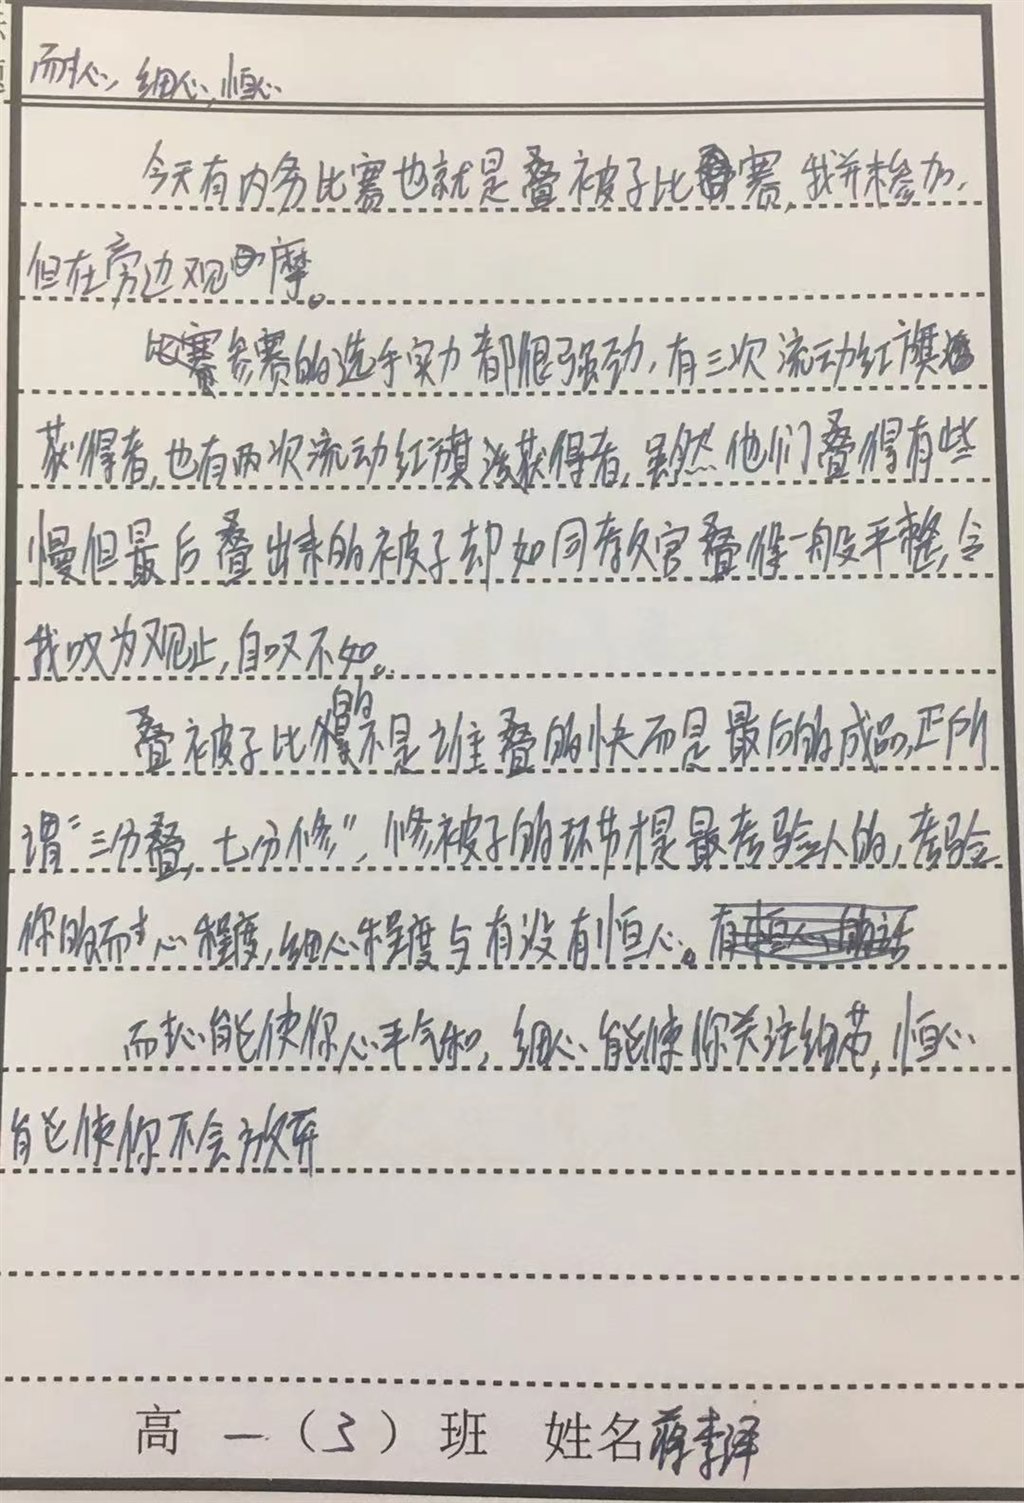 耐心，细心，恒心
今天有内务比赛也就是叠被子比赛，我并未参加，
但在旁边观摩。
参赛的选手实力都很强劲，有三次流动红旗
获得者，也有两次流动红旗获得者，虽然他们叠得有些
慢但最后叠出来的被子却如同教官叠得一般平整，令
我叹为观止，自叹不如。
叠被子比的不是谁叠的快而是最后的成品，正所
谓“三分叠，七分修”，修被子的环节才是最考验人的，考验
你的耐心程度，细心程度与有没有恒心。
耐心能使你心平气和，细心能使你关注细节，恒心
能使你不会放弃
高一（3）班 姓名蒋李泽